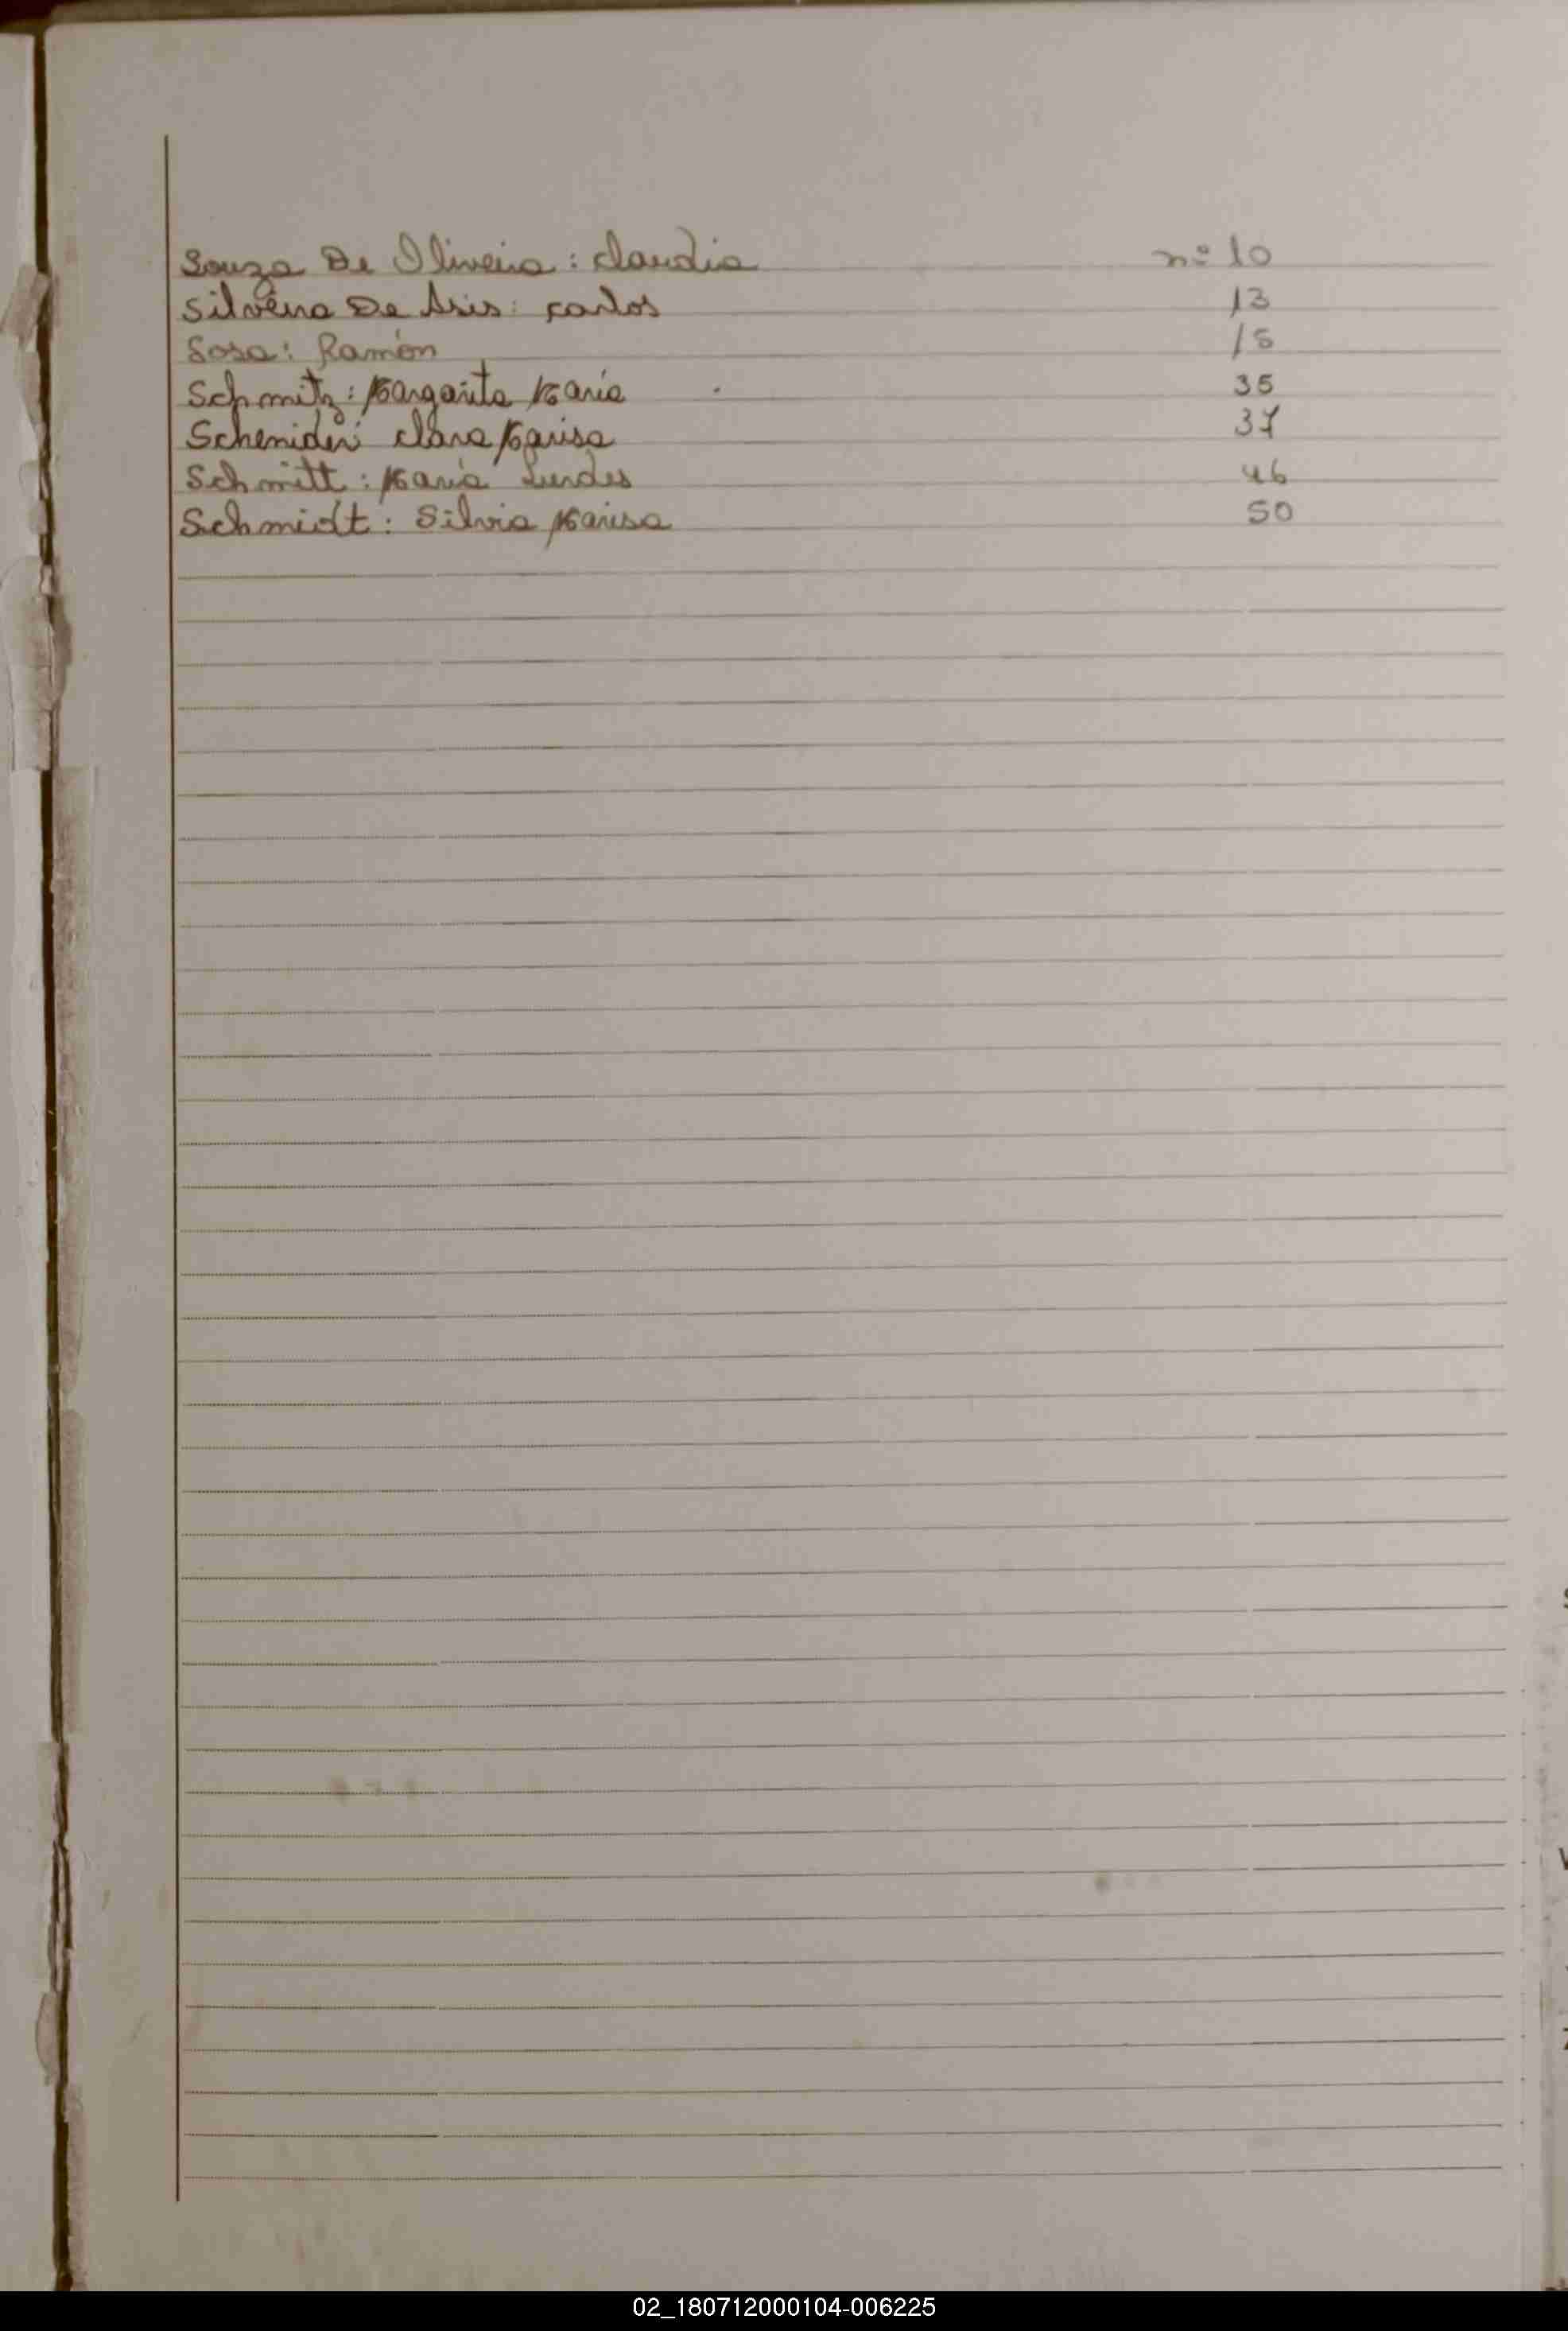 Souza De Oliveira: Claudia nº 10
Silveira De Asis: Carlos 13
Sosa: Ramón 15
Schmitz: Margarita María 35
Schemider: Clara Marisa 37
Schmitt: María Lurdes 46
Schmidt: Silvia Marisa 50
02_180712000104-006225